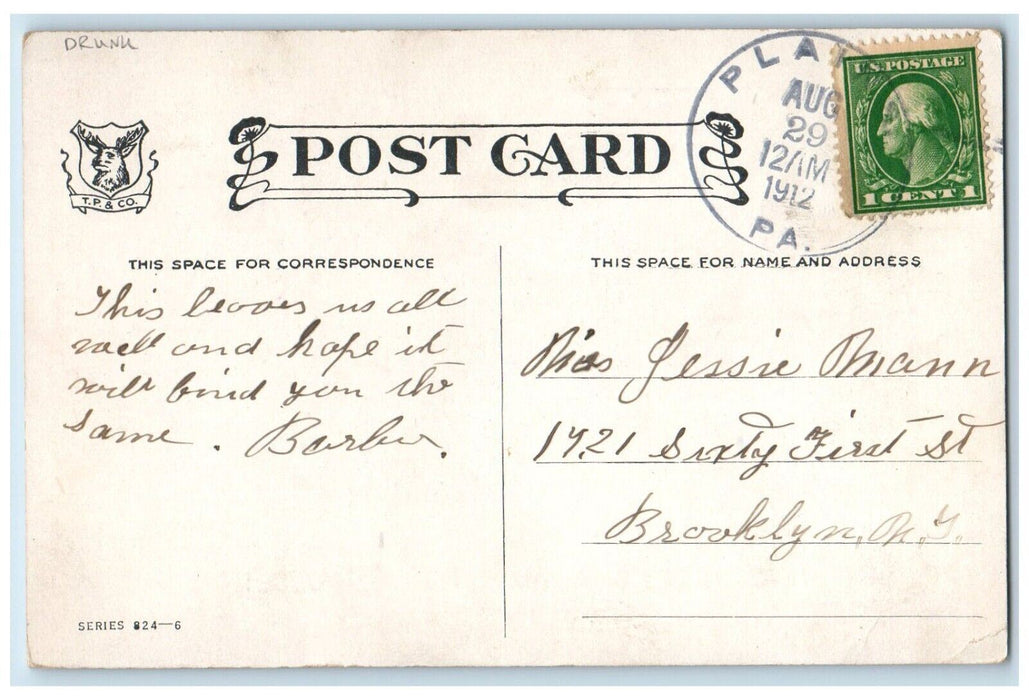 DRUNK
T.P. & CO.
POST CARD
PLAT
AUG
29
12AM
1912
PA.
U.S. POSTAGE
1 CENT 1
THIS SPACE FOR CORRESPONDENCE
This leaves us all
well and hope it
will find you the
same.
THIS SPACE FOR NAME AND ADDRESS
Miss Jessie Mann
1721 Sixty First St
Brooklyn, N.Y.
SERIES 824—6